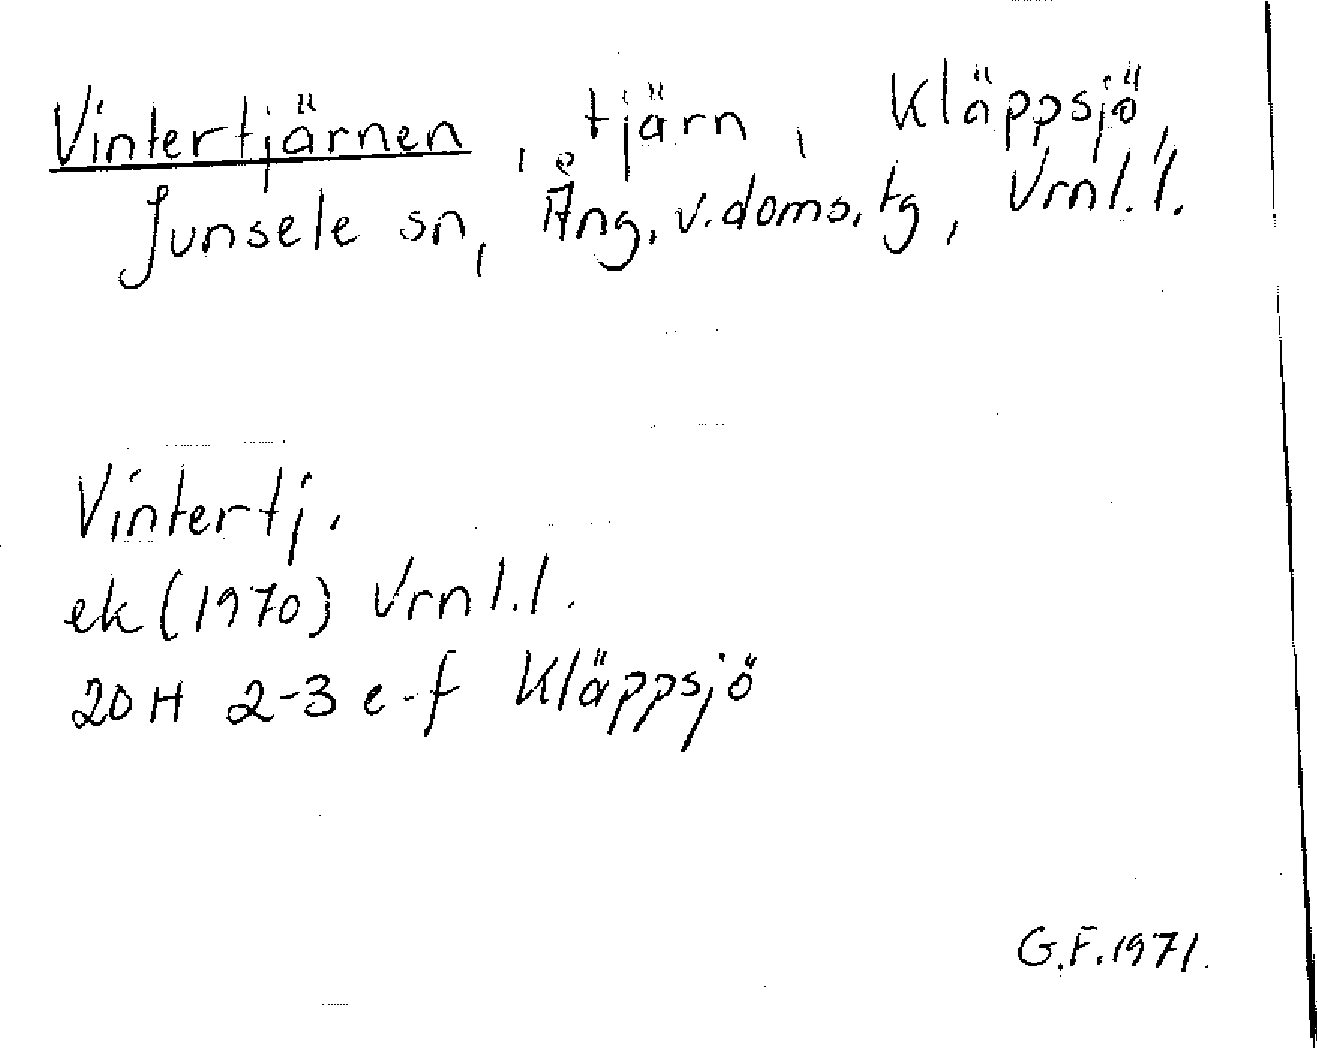 Vintertjärnen, tjärn, Kläppsjö,
Junsele sn, Ång. v. doms. tg, Vrnl. l.
Vintertj.
ek (1970) Vrnl. l.
20H 2-3 e-f Kläppsjö
G.F. 1971.